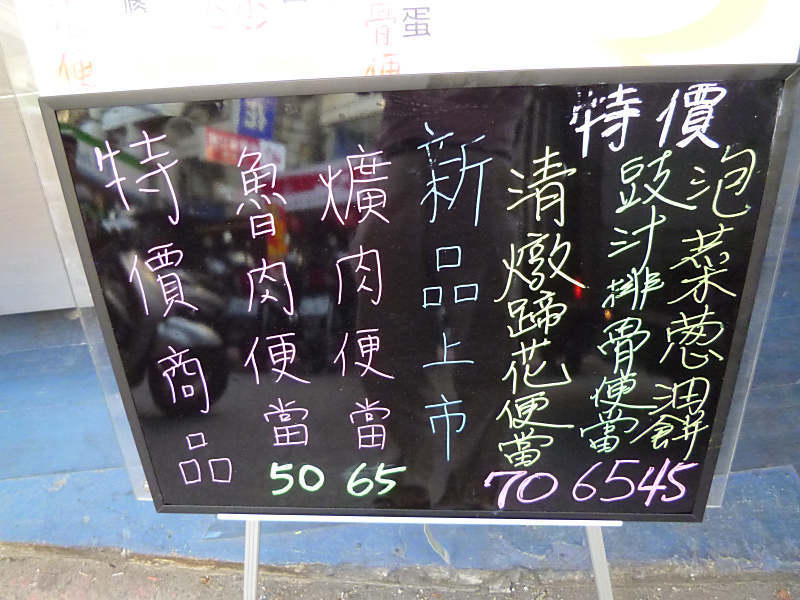 特價
泡菜蔥油餅
45
豉汁排骨便當
65
清燉蹄花便當
70
新品上市
爌肉便當
65
魯肉便當
50
特價商品
蛋
骨便
便